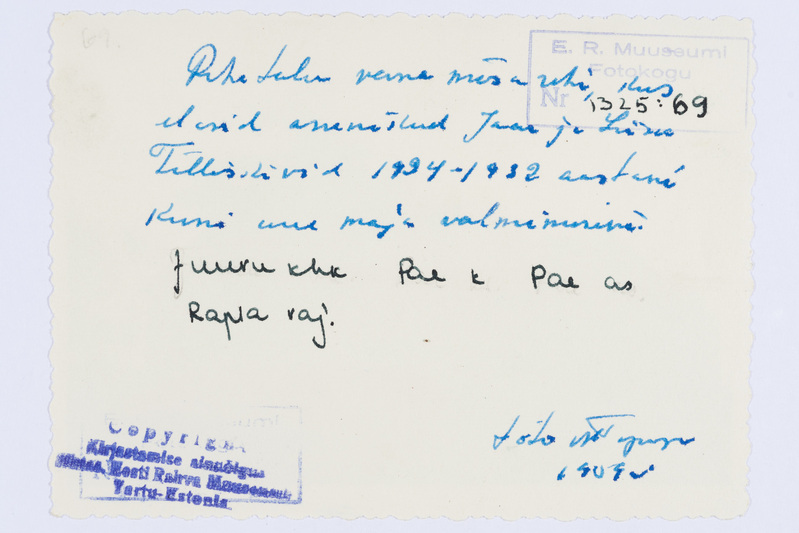 E. R. Muuseumi
Fotokogu
Nr 1325:69
talu vana mõisa rehi, kus
elasid asunikud Jaan ja Liisa
Telliskivid 1924-1932 aastani
Kuni uue maja valmimiseni.
Juuru khk Pae k Pae as
Rapla raj.
foto
Copyright
Kirjastamise ainuõigus
Eesti Rahva Muuseumil
Tartu-Estonia